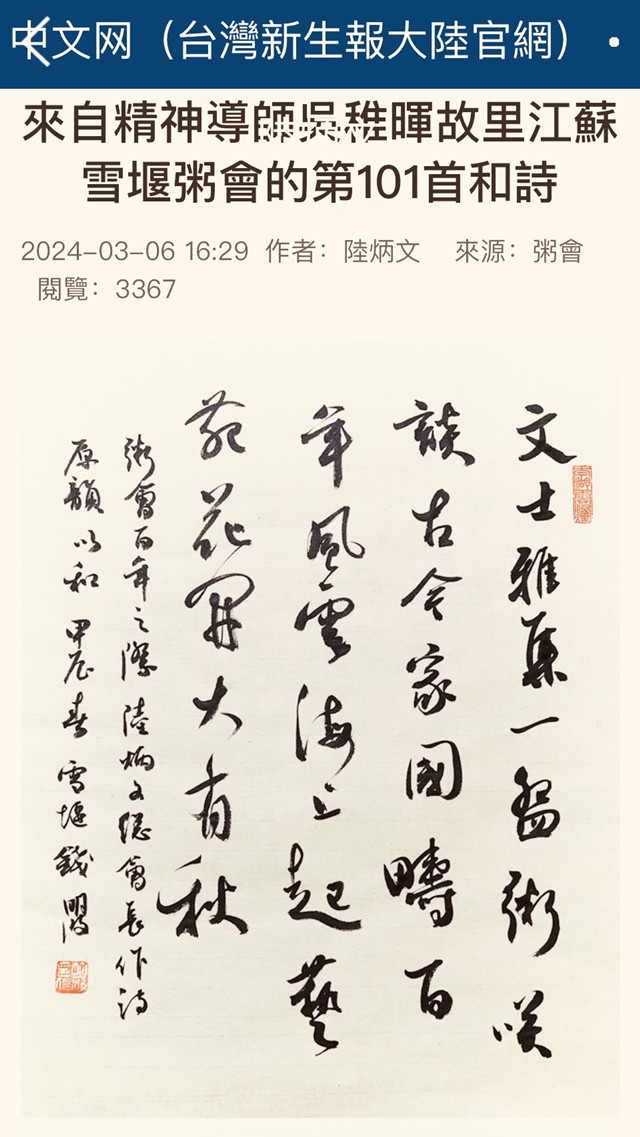 中文网（台灣新生報大陸官網）
來自精神導師吳稚暉故里江蘇
雪堰粥會的第101首和詩
2024-03-06 16:29 作者：陸炳文 來源：粥會
閱覽：3367
文士雅集一盌粥笑
談古今家國疇百
年風雲海上起藝
苑花開大有秋
粥會百年之際陸炳文總會長作詩
原韻以和甲辰春雪堰錢